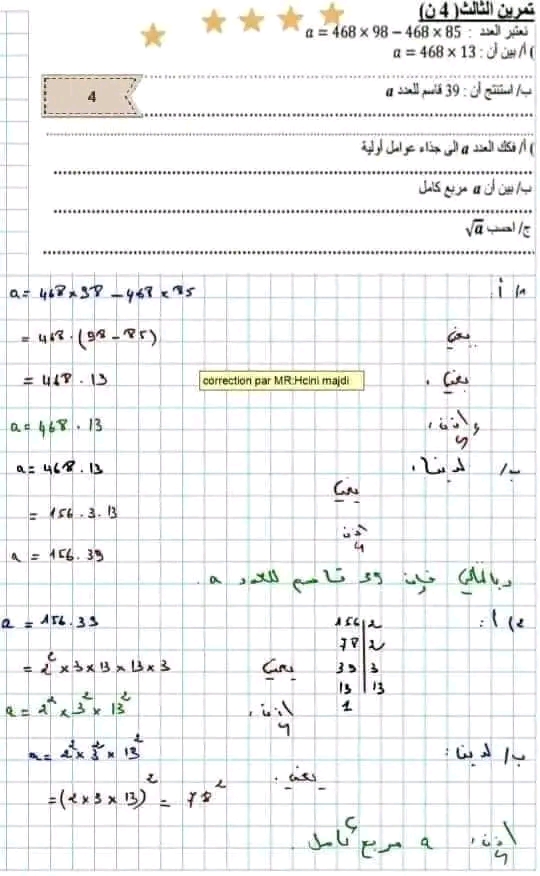 تمرين الثالث( 4 ن)
نعتبر العدد : a = 468 × 98 − 468 × 85
) أ/ بين أن : a = 468 × 13
ب/ استنتج أن : 39 قاسم للعدد a
4
) أ/ فكك العدد a الى جذاء عوامل أولية
ب/ بين أن a مربع كامل
ج/ احسب √a
1/ أ: a = 468 × 98 − 468 × 85
يعني = 468 · (98 − 85)
يعني = 468 · 13
correction par MR:Hcini majdi
وإذن، a = 468 · 13
ب/ لدينا، a = 468 · 13
يعني = 156 · 3 · 13
إذن a = 156 · 39
وبالتالي فإن 39 قاسم للعدد a.
2/ أ: a = 156 · 39
156 | 2
78 | 2
39 | 3
13 | 13
1
يعني = 2² × 3 × 13 × 13 × 3
إذن، a = 2² × 3² × 13²
ب/ لدينا: a = 2² × 3² × 13²
يعني. = (2 × 3 × 13)² = 78²
إذن، a مربع كامل.